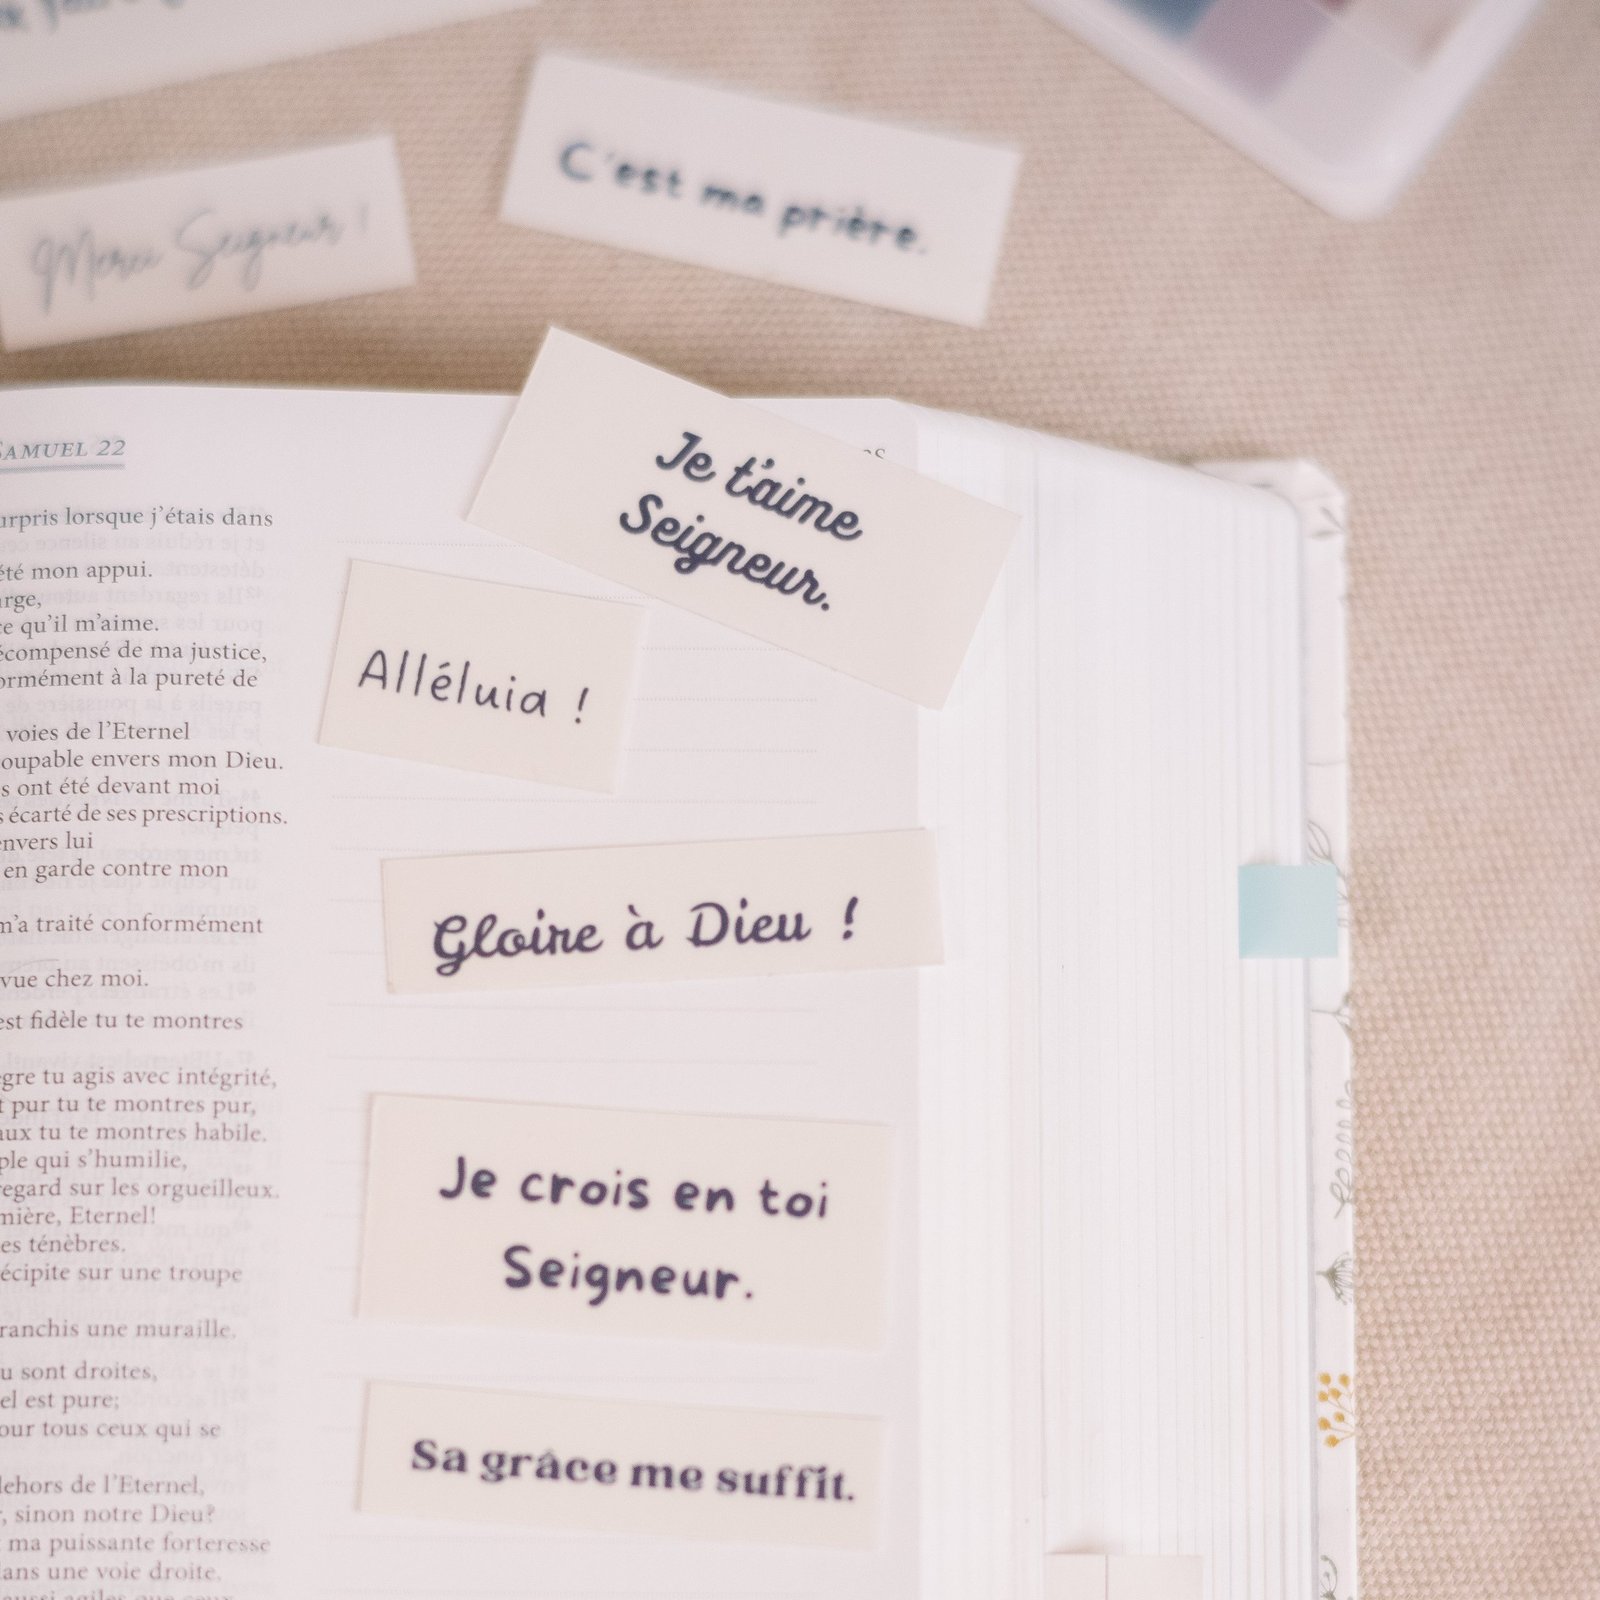 C'est ma prière.
Merci Seigneur !
Je t'aime
Seigneur.
Alléluia !
Gloire à Dieu !
Je crois en toi
Seigneur.
Sa grâce me suffit.
SAMUEL 22
lorsque j'étais dans
été mon appui.
qu'il m'aime.
de ma justice,
à la pureté de
voies de l'Eternel
envers mon Dieu.
ont été devant moi
écarté de ses prescriptions.
envers lui
en garde contre mon
m'a traité conformément
vue chez moi.
est fidèle tu te montres
tu agis avec intégrité,
pur tu te montres pur,
tu te montres habile.
qui s'humilie,
regard sur les orgueilleux.
Eternel!
ténèbres.
sur une troupe
une muraille.
sont droites,
est pure;
tous ceux qui se
de l'Eternel,
sinon notre Dieu?
ma puissante forteresse
dans une voie droite.